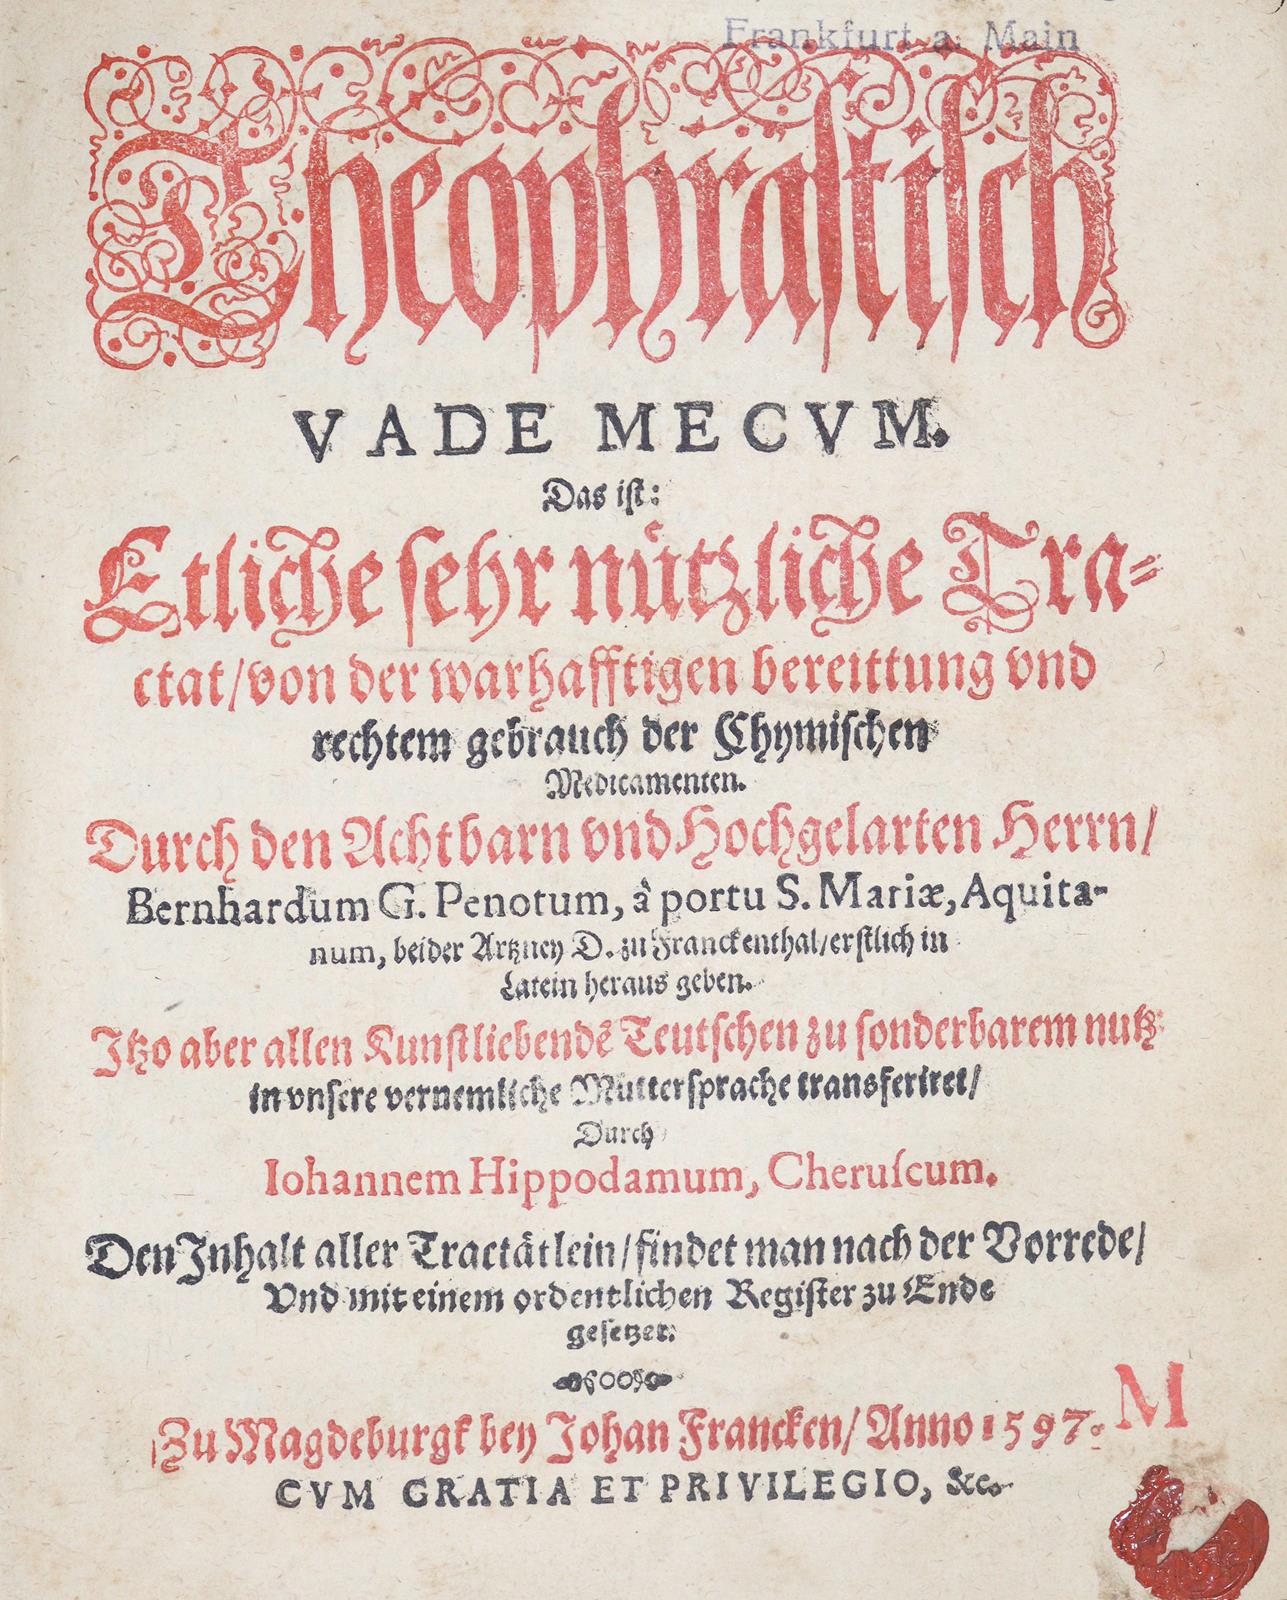 Frankfurt a. Main
Theophraſtiſch
VADE MECVM.
Das iſt:
Etliche ſehr nuͤtzliche Tra⸗
ctat/von der warhafftigen bereittung vnd
rechtem gebrauch der Chymiſchen
Medicamenten.
Durch den Achtbarn vnd Hochgelarten Herrn/
Bernhardum G. Penotum, â portu S. Mariæ, Aquita-
num, beider Artzney D. zu Franckenthal/erſtlich in
Latein heraus geben.
Jtzo aber allen Kunſtliebendẽ Teutſchen zu ſonderbarem nutz
in vnſere vernemliche Mutterſprache transferiret/
Durch
Iohannem Hippodamum, Cheruſcum.
Den Jnhalt aller Tractaͤtlein/findet man nach der Vorrede/
Vnd mit einem ordentlichen Regiſter zu Ende
geſetzet.
Zu Magdeburgk bey Johan Francken/ Anno 1597.
M
CVM GRATIA ET PRIVILEGIO, &c.